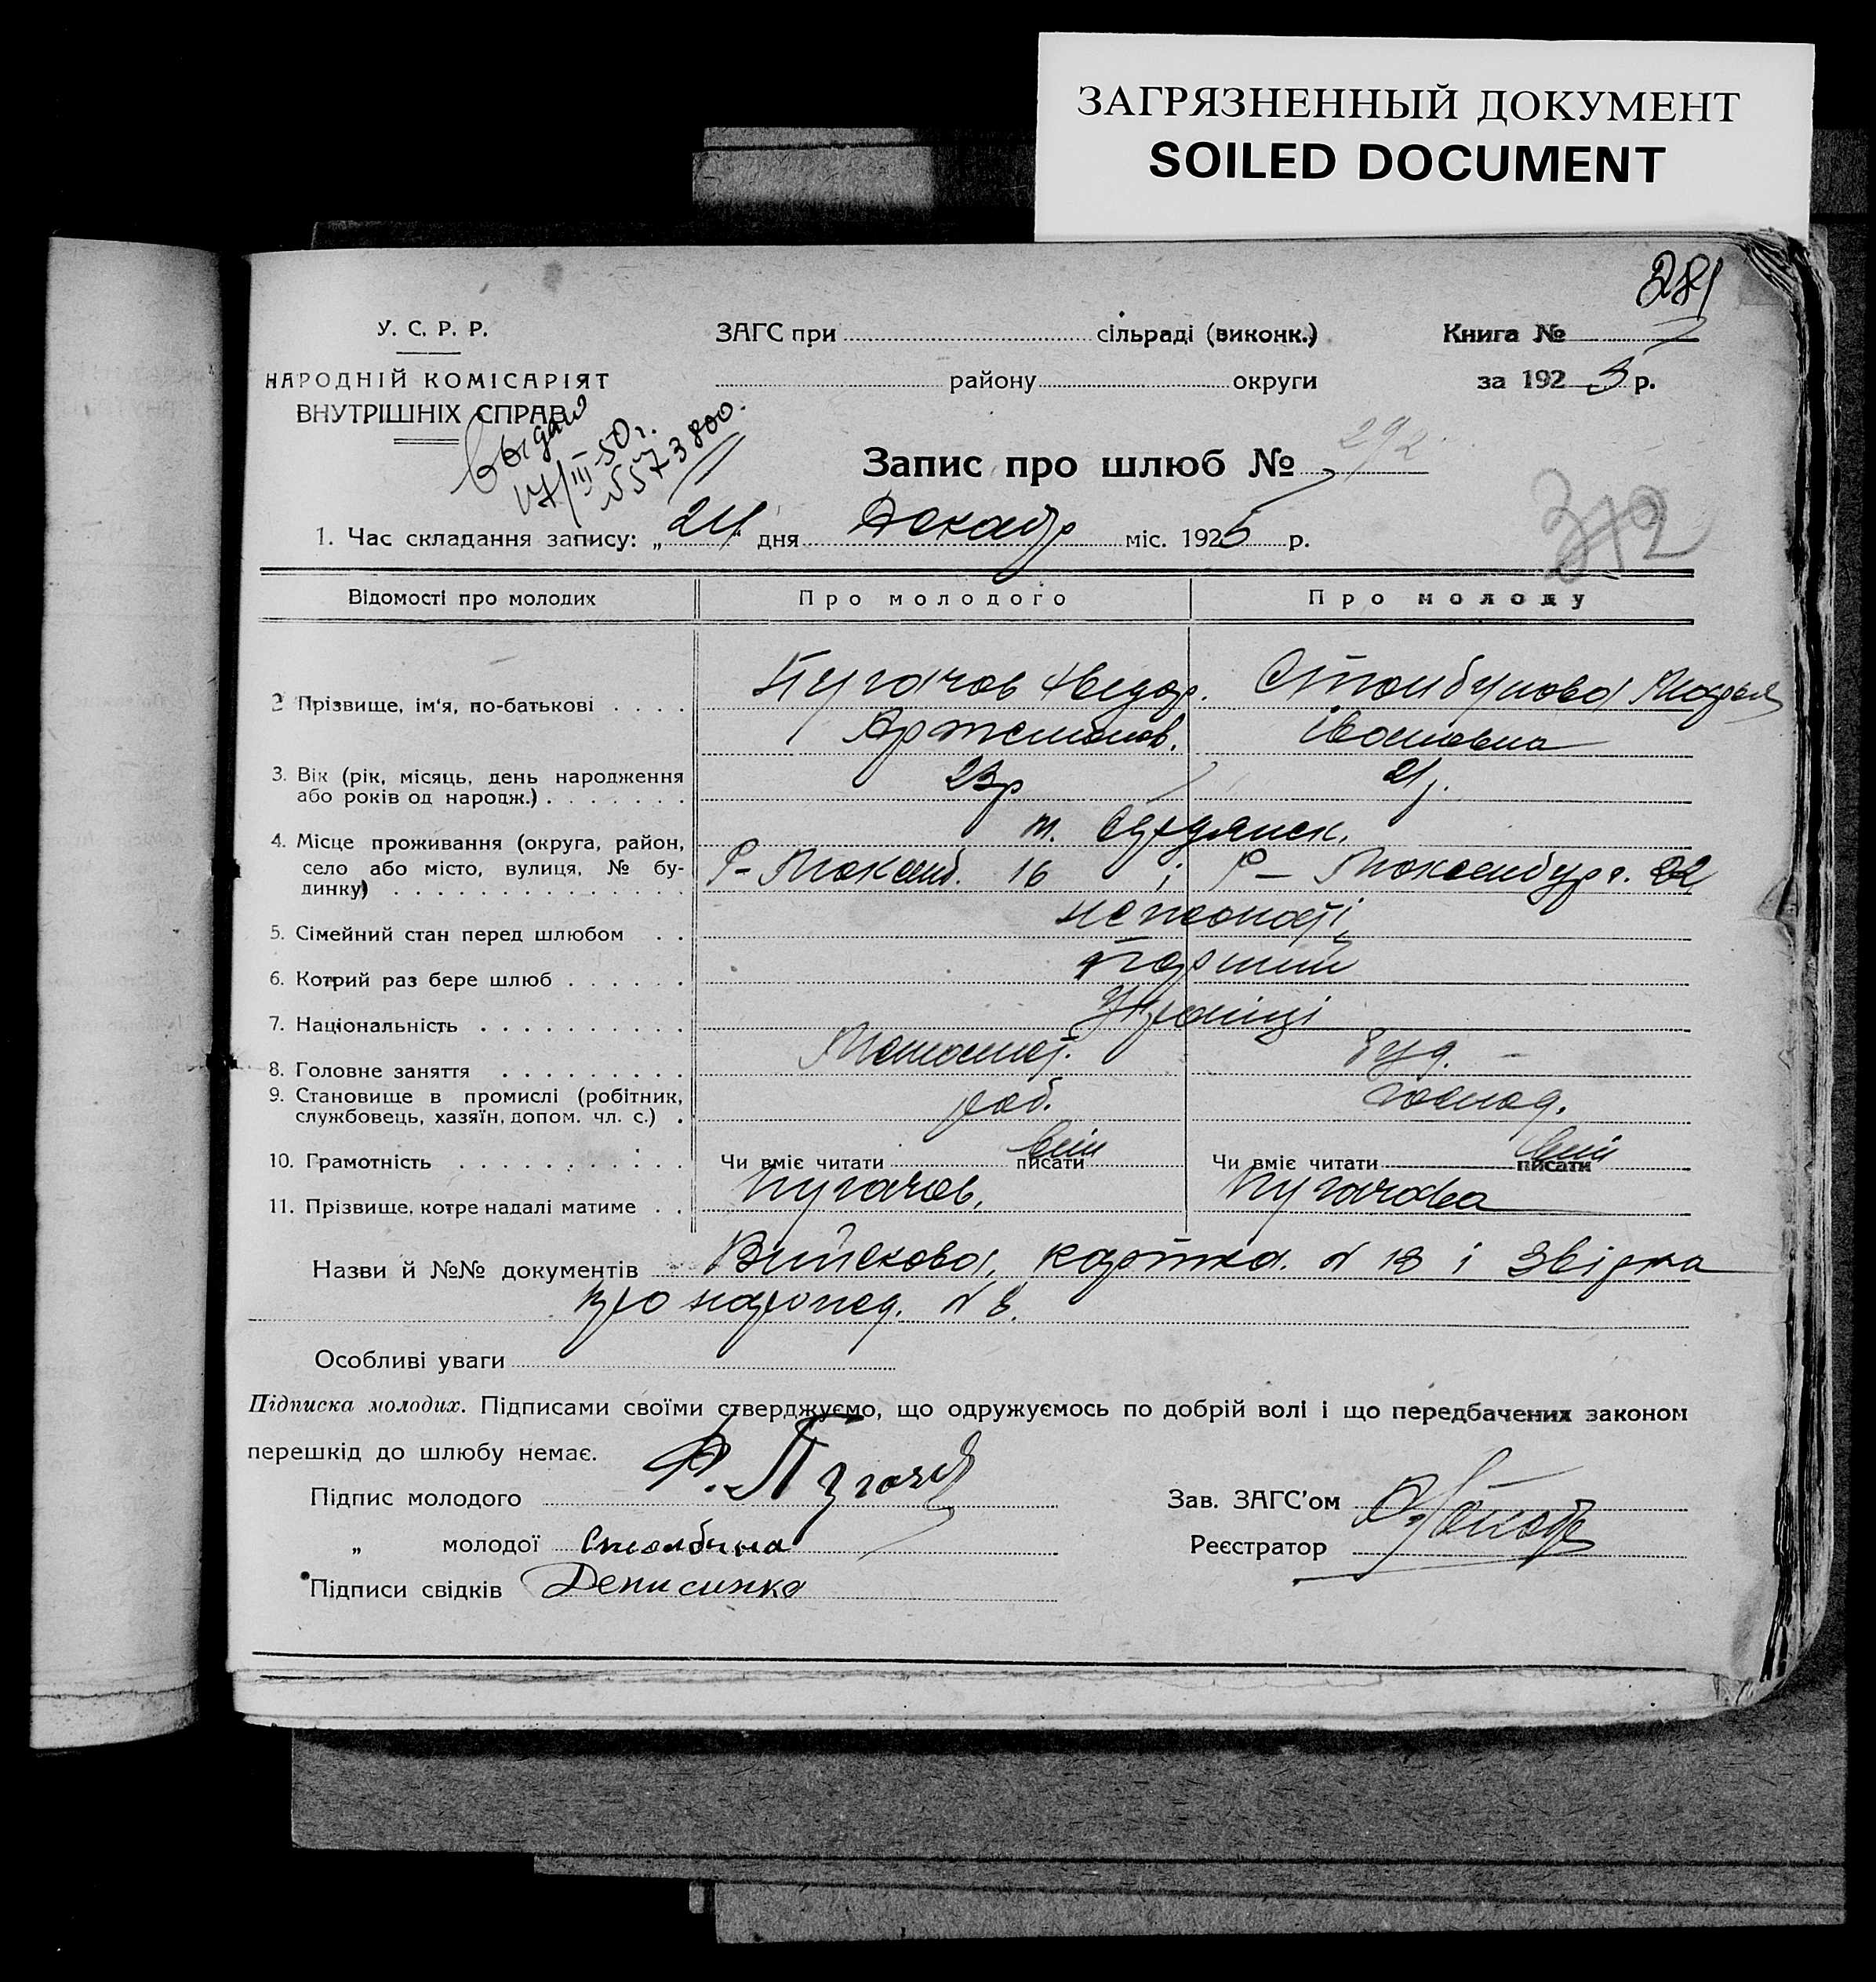 ЗАГРЯЗНЕННЫЙ ДОКУМЕНТ
SOILED DOCUMENT
281
У. С. Р. Р.
НАРОДНІЙ КОМІСАРІЯТ
ВНУТРІШНІХ СПРАВ
ЗАГС при сільраді (виконк.)
району округи
Книга №
за 1925 р.
Выдано
17/III-50 г.
№ 573800.
Запис про шлюб № 292
372
1. Час складання запису: „24“ дня Декабр міс. 1925 р.
Відомості про молодих Про молодого Про молоду
2 Прізвище, ім'я, по-батькові Пугачов Федор. Марья
Артемов. Івановна
3. Вік (рік, місяць, день народження
або років од народж.) 23р 21р.
4. Місце проживання (округа, район,
село або місто, вулиця, № будинку)
м.
Р- Люксемб. 16 і Р- Люксембург. 22
5. Сімейний стан перед шлюбом нежонаті
6. Котрий раз бере шлюб Перший
7. Національність Українці
8. Головне заняття
9. Становище в промислі (робітник,
службовець, хазяїн, допом. чл. с.) роб. господ.
10. Грамотність Чи вміє читати писати вміє Чи вміє читати писати вміє
11. Прізвище, котре надалі матиме Пугачов, Пугачова
Назви й №№ документів Війскова, картка. № 13 і
про народ. № 8.
Особливі уваги
Підписка молодих. Підписами своїми стверджуємо, що одружуємось по добрій волі і що передбачених законом
перешкід до шлюбу немає.
Підпис молодого Ф. Пугачов
Зав. ЗАГС'ом
„ молодої
Реєстратор
Підписи свідків Денисинко